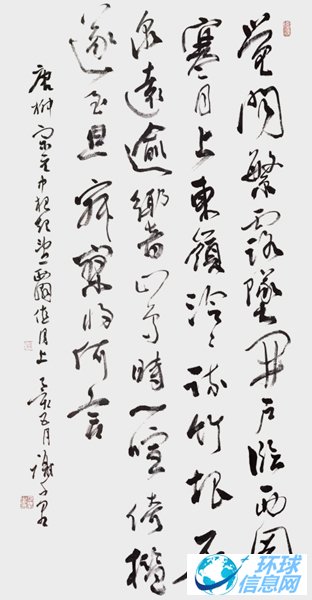 覺聞繁露墜開戶臨西園
寒月上東嶺泠泠疏竹根石
泉遠逾響山鳥時一喧倚楹
遂至旦寂寞將何言
唐柳宗元中夜起望西園值月上 五月
环球
信息网